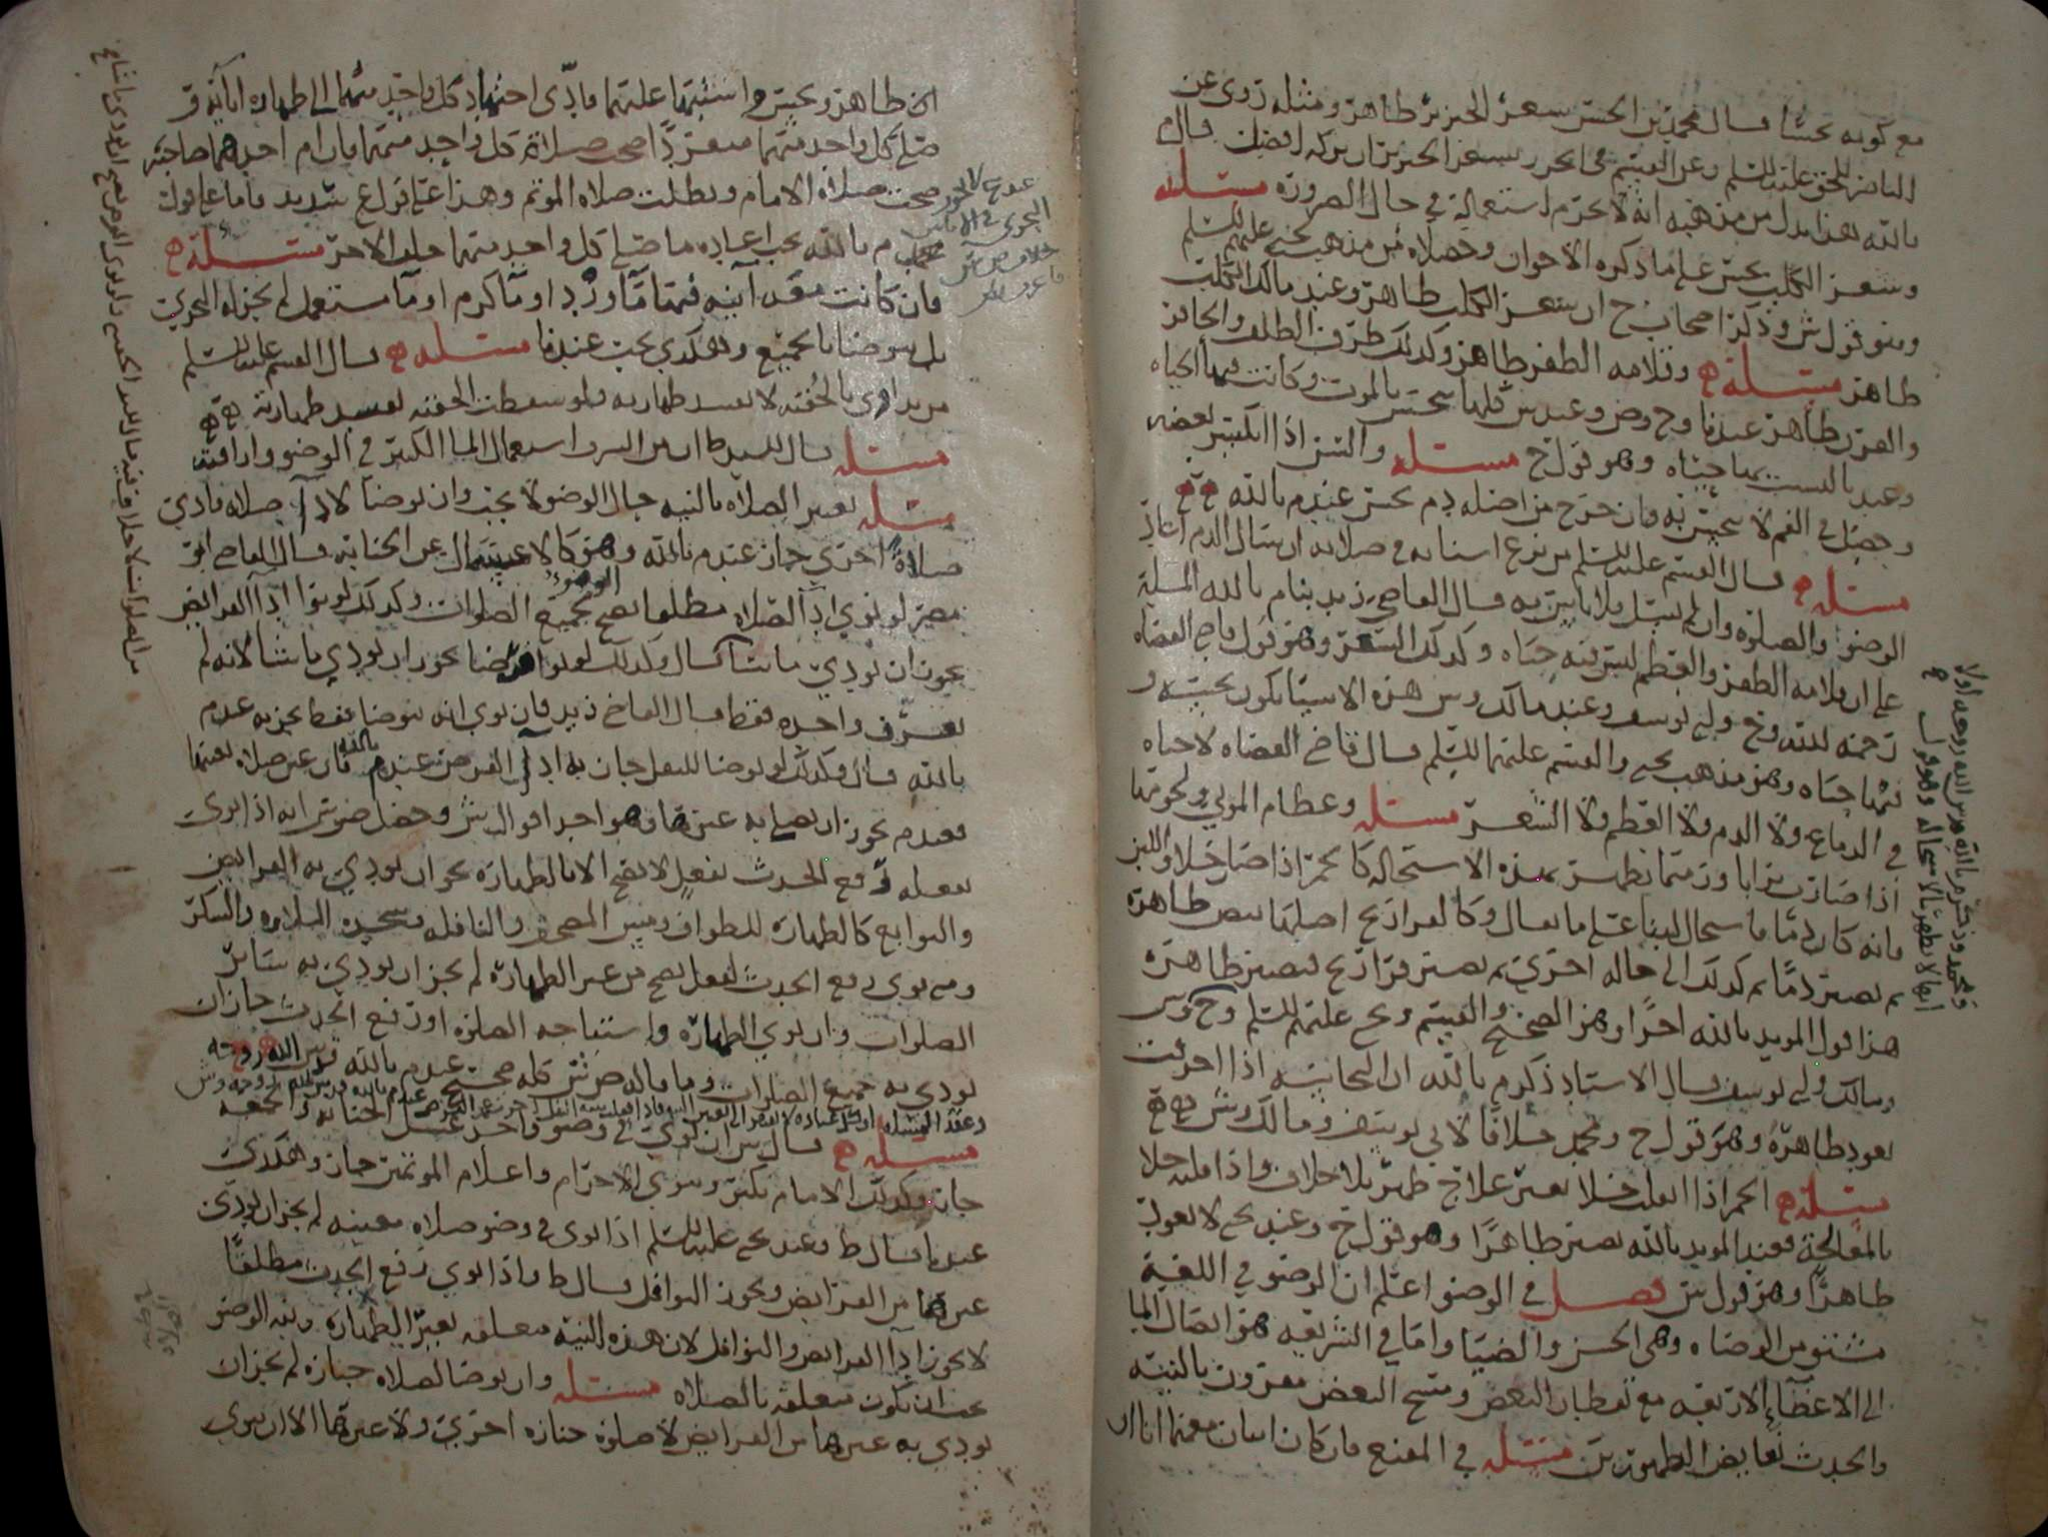 مع كونه نجسا قال محمد بن الحسن شعر الخنزير طاهر ومثله روي عن
الناصر للحق عليه السلم وعن القسم في الخرز بشعر الخنزير ان تركه افضل قال م
بالله هذا يدل من مذهبه انه لا يحرم استعماله في حال الضرورة مسئله
وشعر الكلب نجس على ما ذكره الاخوان وحصلاه من مذهب يحيى عليهم السلم
وهو قول ش وذكر اصحاب ح ان شعر الكلب طاهر وعند مالك الكلب
طاهر مسئلة وقلامه الظفر طاهر وكذلك طرف الظلف والحافر
والقرن طاهر عندنا وح وص وعند ش كلها تنجس بالموت وكانت فيها الحياه
وعند بالله ليست بها حياه وهو قول ح مسئله والسن اذا انكسر بعضه
وحصل في الفم لا ينجس به فان خرج من اصله دم نجس عند م بالله
مسئله قال القسم عليه السلم من نزع اسنانه في صلاته ان سال الدم اعاد
الوضو والصلوه وان لم يسل فلا باس به قال القاضي زيد بنا م بالله المسلة
على ان قلامه الظفر والعظم ليس فيه حياه وكذلك الشعر وهو قول قاضي القضاه
رحمه الله وح وابي يوسف وعند مالك وش هذه الاشيا تكون نجسه و
فيها حياه وهو مذهب يحيى والقسم عليهما السلم قال قاضي القضاه لا حياه
في الدماغ ولا الدم ولا العظم ولا الشعر مسئله وعظام الموتى ولحومها
اذا صارت ترابا ورميما يطهر بهذه الاستحاله كالخمر اذا صار خلا واللبن
فانه كان دما فاستحال لبنا على ما يقال وكالفراريج اصلها بيض طاهرة
ثم تصير دما ثم كذلك الى حاله اخرى ثم تصير فراريج فتصير طاهره
هذا قول المويد بالله اخرا وهو الصحيح والقسم ويحيى عليهم السلم وح وش
ومالك وابي يوسف قال الاستاذ ذكر م بالله ان النجاسه اذا احرقت
يعود طاهره وهو قول ح ومحمد خلافا لابي يوسف ومالك وش
مسئله الخمر اذا انقلب خلا بغير علاج طهر بلا خلاف واذا قلبه خلا
بالمعالجة فعند المويد بالله يصير طاهرا وهو قول ح وعند يحيى لا يعود
طاهرا وهو قول ش فصل في الوضو اعلم ان الوضو في اللغة
مشتق من الوضاه وهي الحسن والضيا واما في الشريعه هو ايصال الما
الى الاعضاء الاربعه مع تغطيل البعض ومسح البعض مقرون بالنيه
والحدث نقايض الطهورين مسئله في المقنع فان كان اسان معهما اناان
ومحمد وذكر م بالله قدس الله روحه اولا
انها لا تطهر بالاستحاله وهو قول
اناء طاهر ونجس واشتبها عليهما فادى اجتهاد كل واحد منهما الى طهاره
صلى كل واحد منهما منفردا صحت صلاة كل واحد منهما فان ام احدهما صاحبه
صحت صلاه الامام وبطلت صلاه الموتم وهذا على قول ع شديد فاما على قول
م بالله يجب اعاده ما صلى كل واحد منهما خلف الاخر مسئلة
فان كانت معه آنيه فيها ماء ورد او ماء كرم او ماء مستعمل لم يجزاه التحري
بل يتوضا بالجميع وهكذى يجب عندنا مسئله قال القسم عليه السلم
من يداوى بالحقنه لا تفسد طهارته ولو سقطت الحقنه تفسد طهارته
مسئله قال السيد ط ان من السرف استعمال الما الكثير في الوضو واراقته
مسئله تعيين الصلاه بالنيه حال الوضو لا يجب وان توضا لاداء صلاه فادى
صلاة اخرى جاز عند م بالله وهو كالاغتسال عن الجنابه قال القاضي ابو
مضر لو نوى اداء الصلاه مطلقا يصح لجميع الصلوات وكذلك لو نوا اداء الفرايض
يجوز ان يودي ما شا كمال وكذلك لو نوا فرضا يجوز ان يودي ما شا لانه لم
يعرف واحده فقط قال القاضي زيد فان نوى انه يتوضا فقط يجزيه عند م
بالله قال وكذلك لو توضا للنفل جاز به اداء الفرض عند م بالله فان عين صلاة بعينها
فعند م يجوز ان يصلي به غيرها وهو احد اقوال ش وحصل ص ش انه اذا نوى
بفعله رفع الحدث لفعل لا يصح الا بالطهاره يجوز ان يودي به الفرايض
والتوابع كالطهاره للطواف ومس المصحف والنافله وسجده التلاوه والشكر
ومتى نوى رفع الحدث لفعل يصح من غير الطهاره لم يجز ان يودي به سائر
الصلوات وان نوى الطهاره واستباحه الصلوه او رفع الحدث جاز ان
يودي به جميع الصلوات وما قاله ص ش كله صحيح عند م بالله قدس الله روحه
مسئله قال ش ان نوى في وضو واحد غسل الجنابه والجمعه
جاز وكذلك الامام يكبر وينوي الاحرام واعلام الموتمين جاز وهكذى
عندنا قال ط وعند يحيى عليه السلم اذا نوى في وضو صلاه معينه لم يجز ان يودي
غيرها من الفرايض ويجوز النوافل قال ط واذا نوى رفع الحدث مطلقا
لا يجوز اداء الفرايض والنوافل لان هذه النيه متعلقه بغير الطهاره ونيه الوضو
يجب ان تكون متعلقه بالصلاه مسئله وان توضا لصلاه جنازه لم يجز ان
يودي به غيرها من الفرايض لا صلوة جنازه اخرى ولا غيرها الا ان ينوي